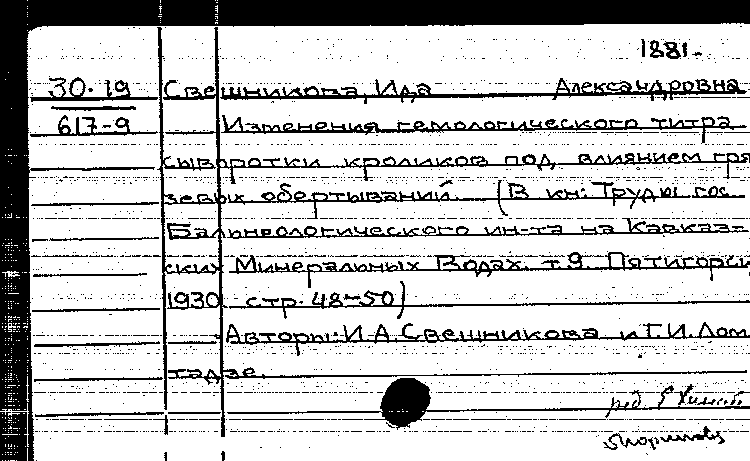 1881-
30.19 Свешникова, Ида Александровна
617-9 Изменения гемологического титра
сыворотки кроликов под влиянием гря
зевых обертываний. (В кн: Труды гос.
Бальнеологического ин-та на Кавказ=
ских Минеральных Водах. т.9. Пятигорск
1930 стр. 48-50)
Авторы: И.А. Свешникова и Г.И. Лом
тадзе.
ред.